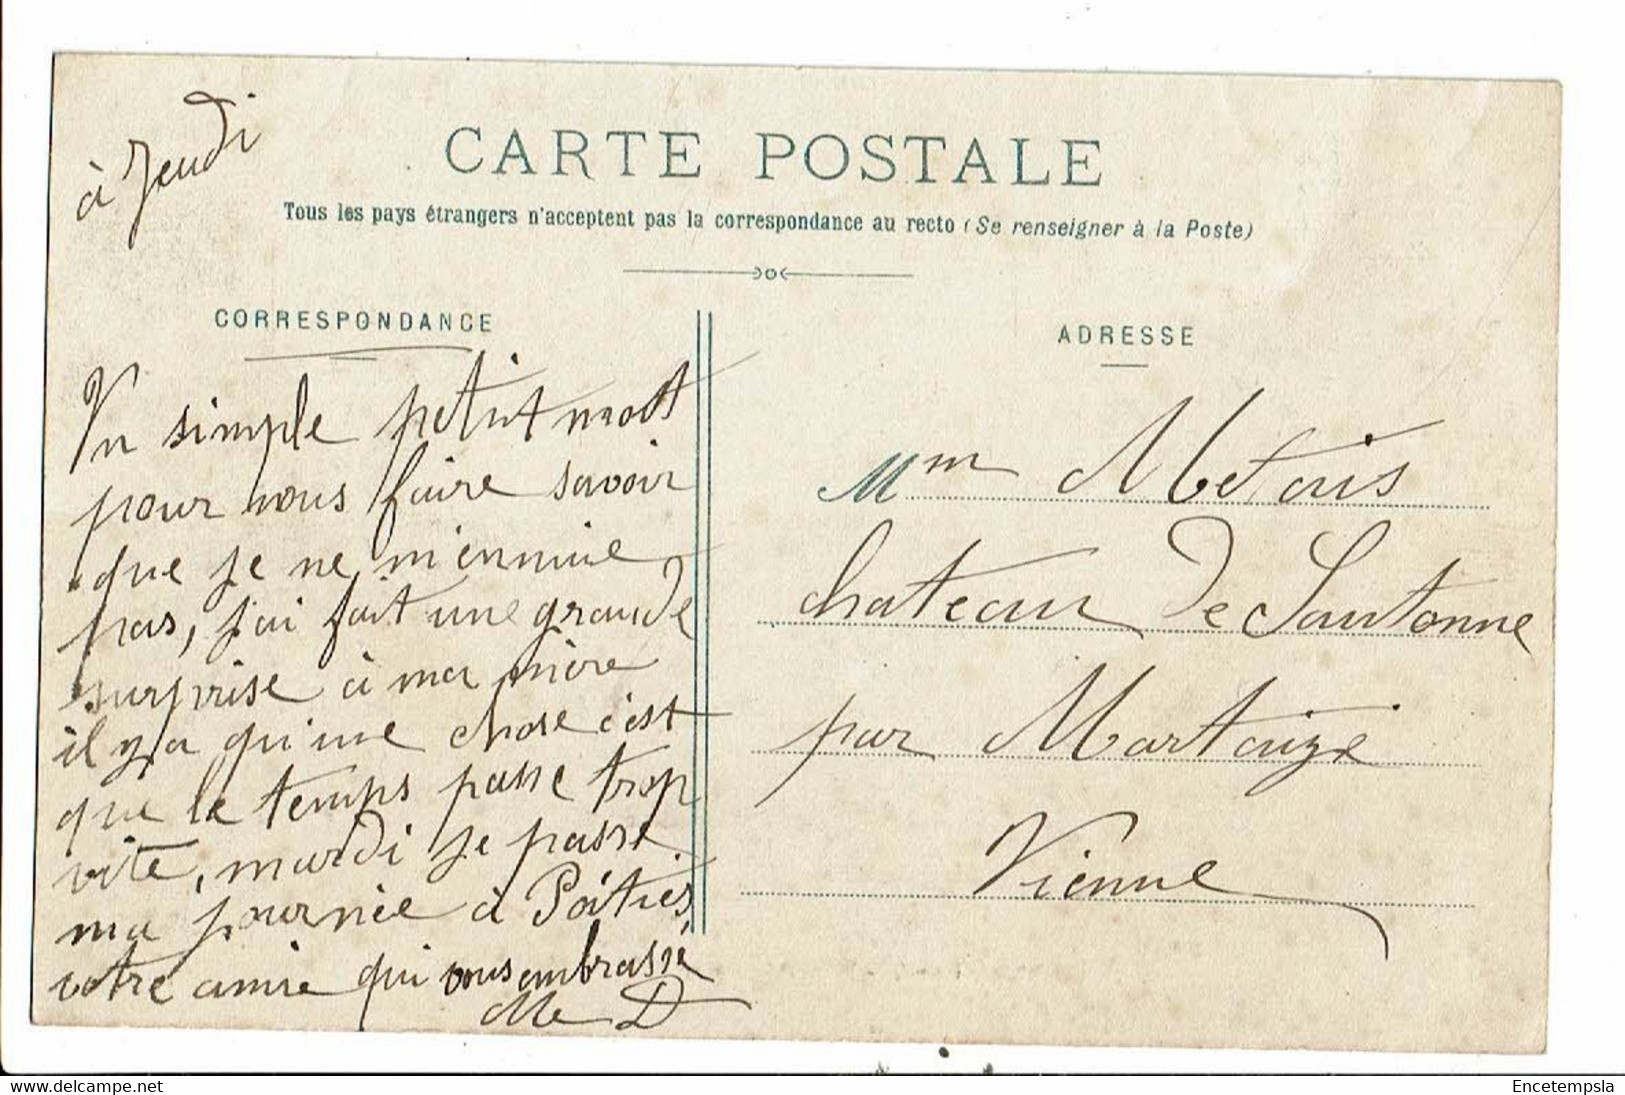 à Jeudi
CARTE POSTALE
Tous les pays étrangers n'acceptent pas la correspondance au recto (Se renseigner à la Poste)
CORRESPONDANCE
Un simple petit mott
pour vous faire savoir
que je ne m'ennuie
pas, j'ai fait une grande
surprise à ma mère
il y a qu'une chose c'est
que le temps passe trop
vite, mardi je passe
ma journée à Poitiés,
votre amie qui vous embrasse
Me D
ADRESSE
Mm Metais
chateau de Sautonne
par Martaizé
Vienne
Encetempsla